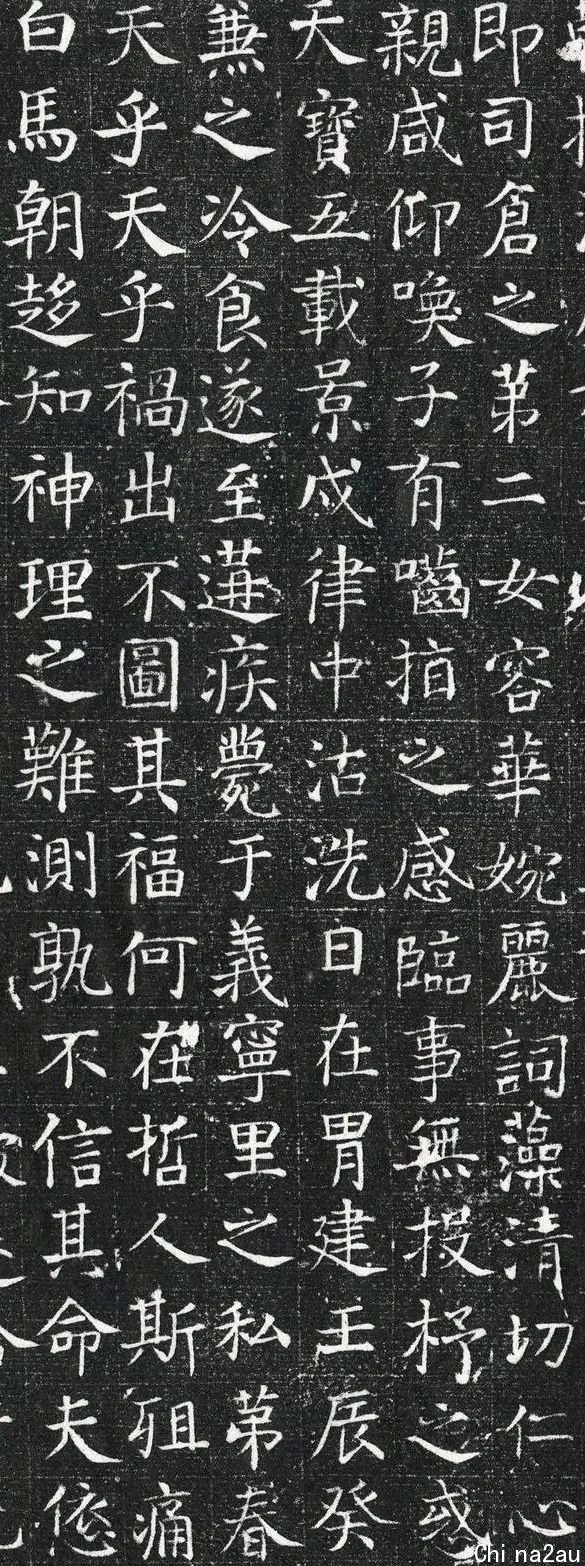 即司倉之苐二女容華婉麗詞藻清切仁心
親咸仰喚子有嚙指之感臨事無投杼之惑
天寶五載景戌律中沽洗日在胃建壬辰癸
兼之冷食遂至遘疾薨于義寧里之私苐春
天乎天乎禍出不圖其福何在哲人斯殂痛
白馬朝趍知神理之難測孰不信其命夫㤅
Chi na2au